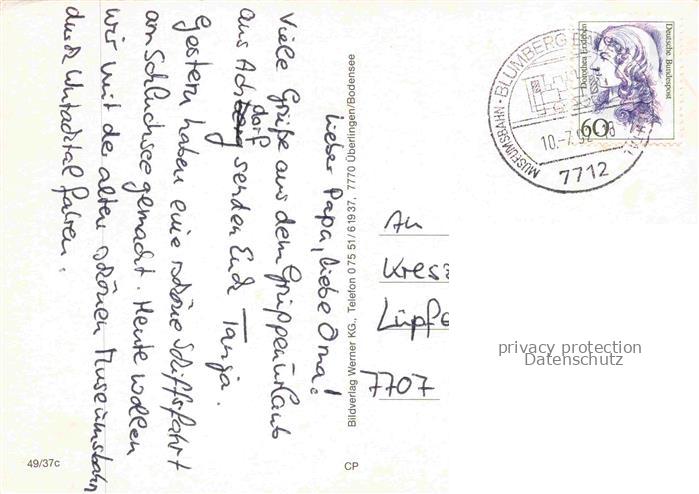 Lieber Papa, liebe Oma!
Viele Grüße aus dem Gruppenurlaub
aus Achdorf senden Euch Tanja.
Gestern haben eine schöne Schiffsfahrt
am Schluchsee gemacht. Heute wollen
wir mit der alten schönen Museumsbahn
durch Wutachtal fahren.
Bildverlag Werner KG., Telefon 0 75 51 / 6 19 37, 7770 Überlingen/Bodensee
49/37c
CP
Deutsche Bundespost
Dorothea Erxleben
60
MUSEUMSBAHN · BLUMBERG
10.-7.9
7712
An
Kresz
Lüpfe
7707
privacy protection
Datenschutz